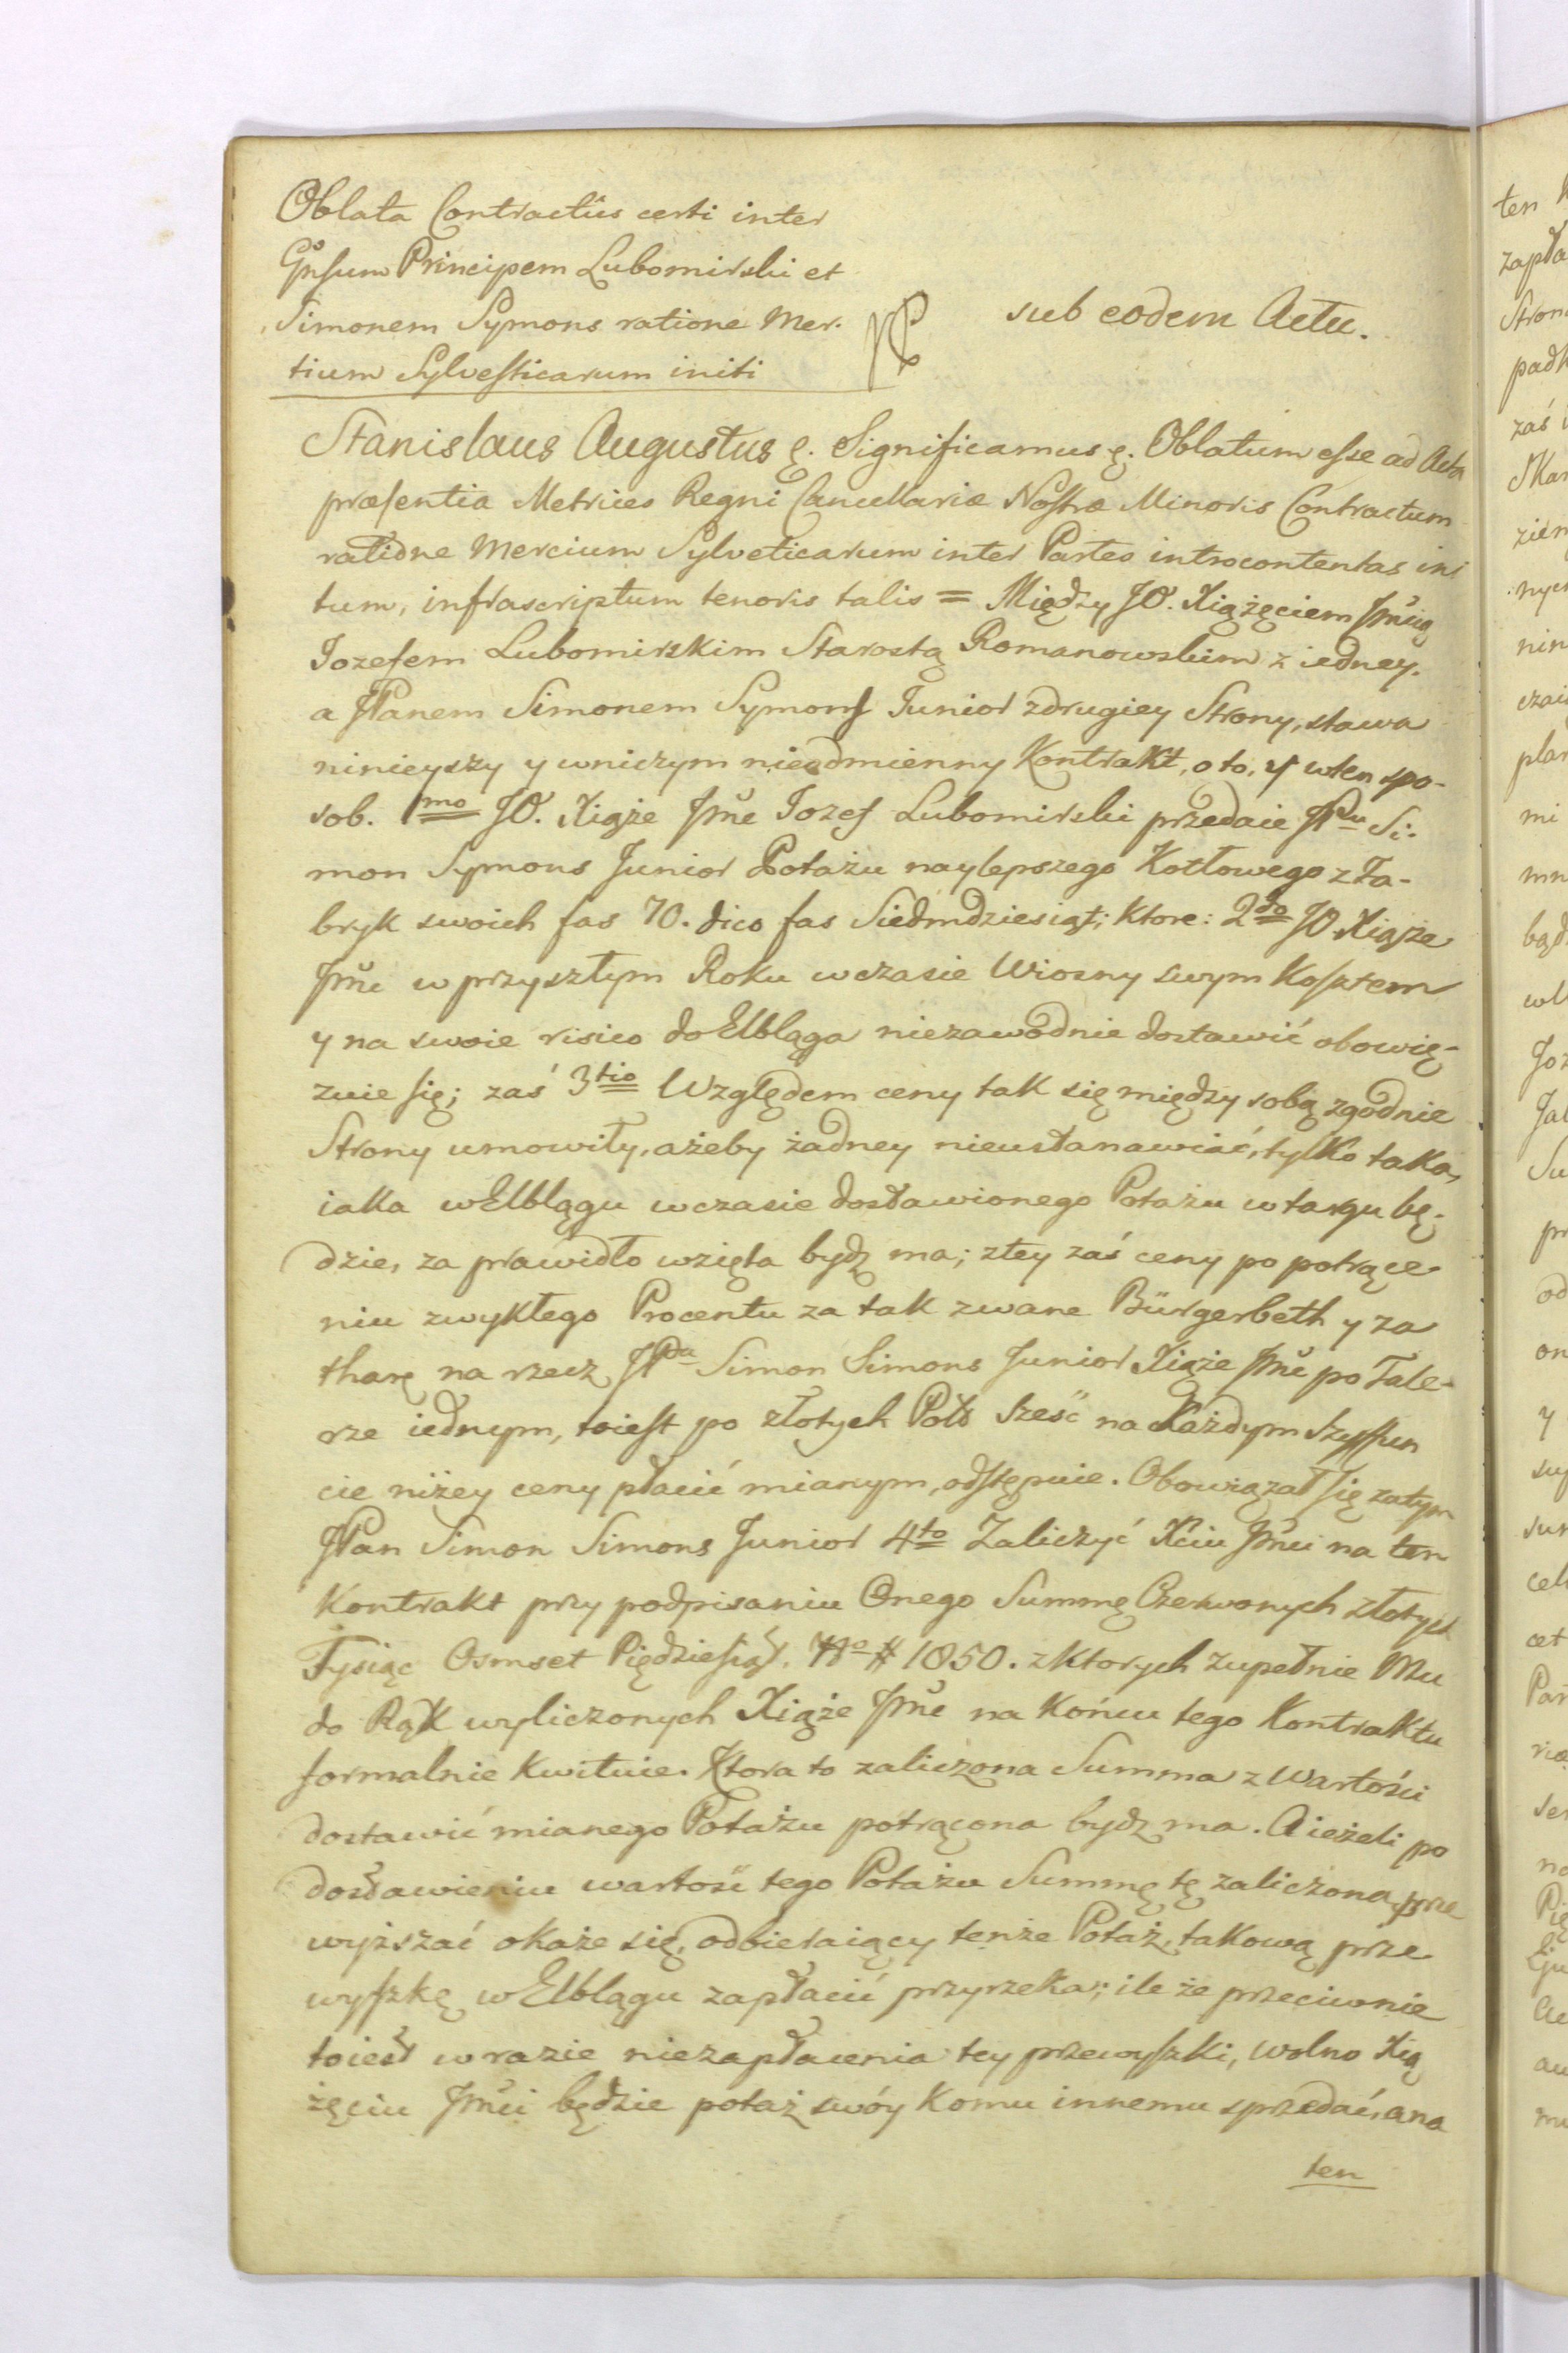 Oblata Contractûs certi inter
Gnsum Principem Lubomirski et
Simonem Symons ratione Mer-
tium Sylvesticarum initi
sub eodem Actu.
Stanislaus Augustus &. Significamus &. Oblatum esse ad Acta
præsentia Metrices Regni Cancellariæ Nostræ Minoris Contractum
ratione Mercium Sylveticarum inter Partes introcontentas ini
tum, infrascriptum tenoris talis = Między JO. Xiążęciem Jmcią
Jozefem Lubomirskim Starostą Romanowskim z iedney.
a JPanem Simonem Symons Junior z drugiey Strony, stawa
ninieyszy y wniczym nieodmienny Kontrakt, o to, y wten spo-
sob. 1mo JO. Xiąże Jmć Jozef Lubomirski przedaie JPnu Si-
mon Symons Junior Potażu naylepszego Kotłowego z Fa-
bryk swoich fas 70. dico fas Siedmdziesiąt; Ktore: 2do JO. Xiąże
Jmć w przyszłym Roku wczasie Wiosny swym Kosztem
y na swoie risico do Elbląga niezawodnie dostawić obowię-
zuie się; zaś 3tio Względem ceny tak się między sobą zgodnie
Strony umowiły, ażeby żadney nieustanawiać, tylko taka,
iaka w Elblągu wczasie dostawionego Potażu w targu bę-
dzie, za prawidło wzięta bydź ma; z tey zaś ceny po potrące-
niu zwykłego Procentu za tak zwane Bürgerbeth y za
tharę na rzecz JPna Simon Simons Junior Xiąże Jmć po Tale-
rze iednym, toiest po złotych Pols sześć na Każdym Szyffun
cie niżey ceny płacić mianym, odstępuie. Obowiązał się zatym
JPan Simon Simons Junior 4to Zaliczyć Xciu Jmci na ten
Kontrakt przy podpisaniu Onego Summę Czerwonych złotych
Tysiąc Osmset Pięćdziesiąt. No # 1850. z ktorych zupełnie Mu
do Rąk wyliczonych Xiąże Jmć na Końcu tego Kontraktu
formalnie Kwituie. Ktora to zaliczona Summa z Wartości
dostawić mianego Potażu potrącona bydź ma. A ieżeli po
dostawieniu wartość tego Potażu Summę tę zaliczoną prze
wyższać okaże się, odbieraiący tenże Potaż, takową prze
wyszkę w Elblągu zapłacić przyrzeka; ile że przeciwnie
toiest w razie niezapłacenia tey przewyszki, wolno Xią
żęciu Jmci będzie potaż swóy Komu innemu sprzedać, a na
ten